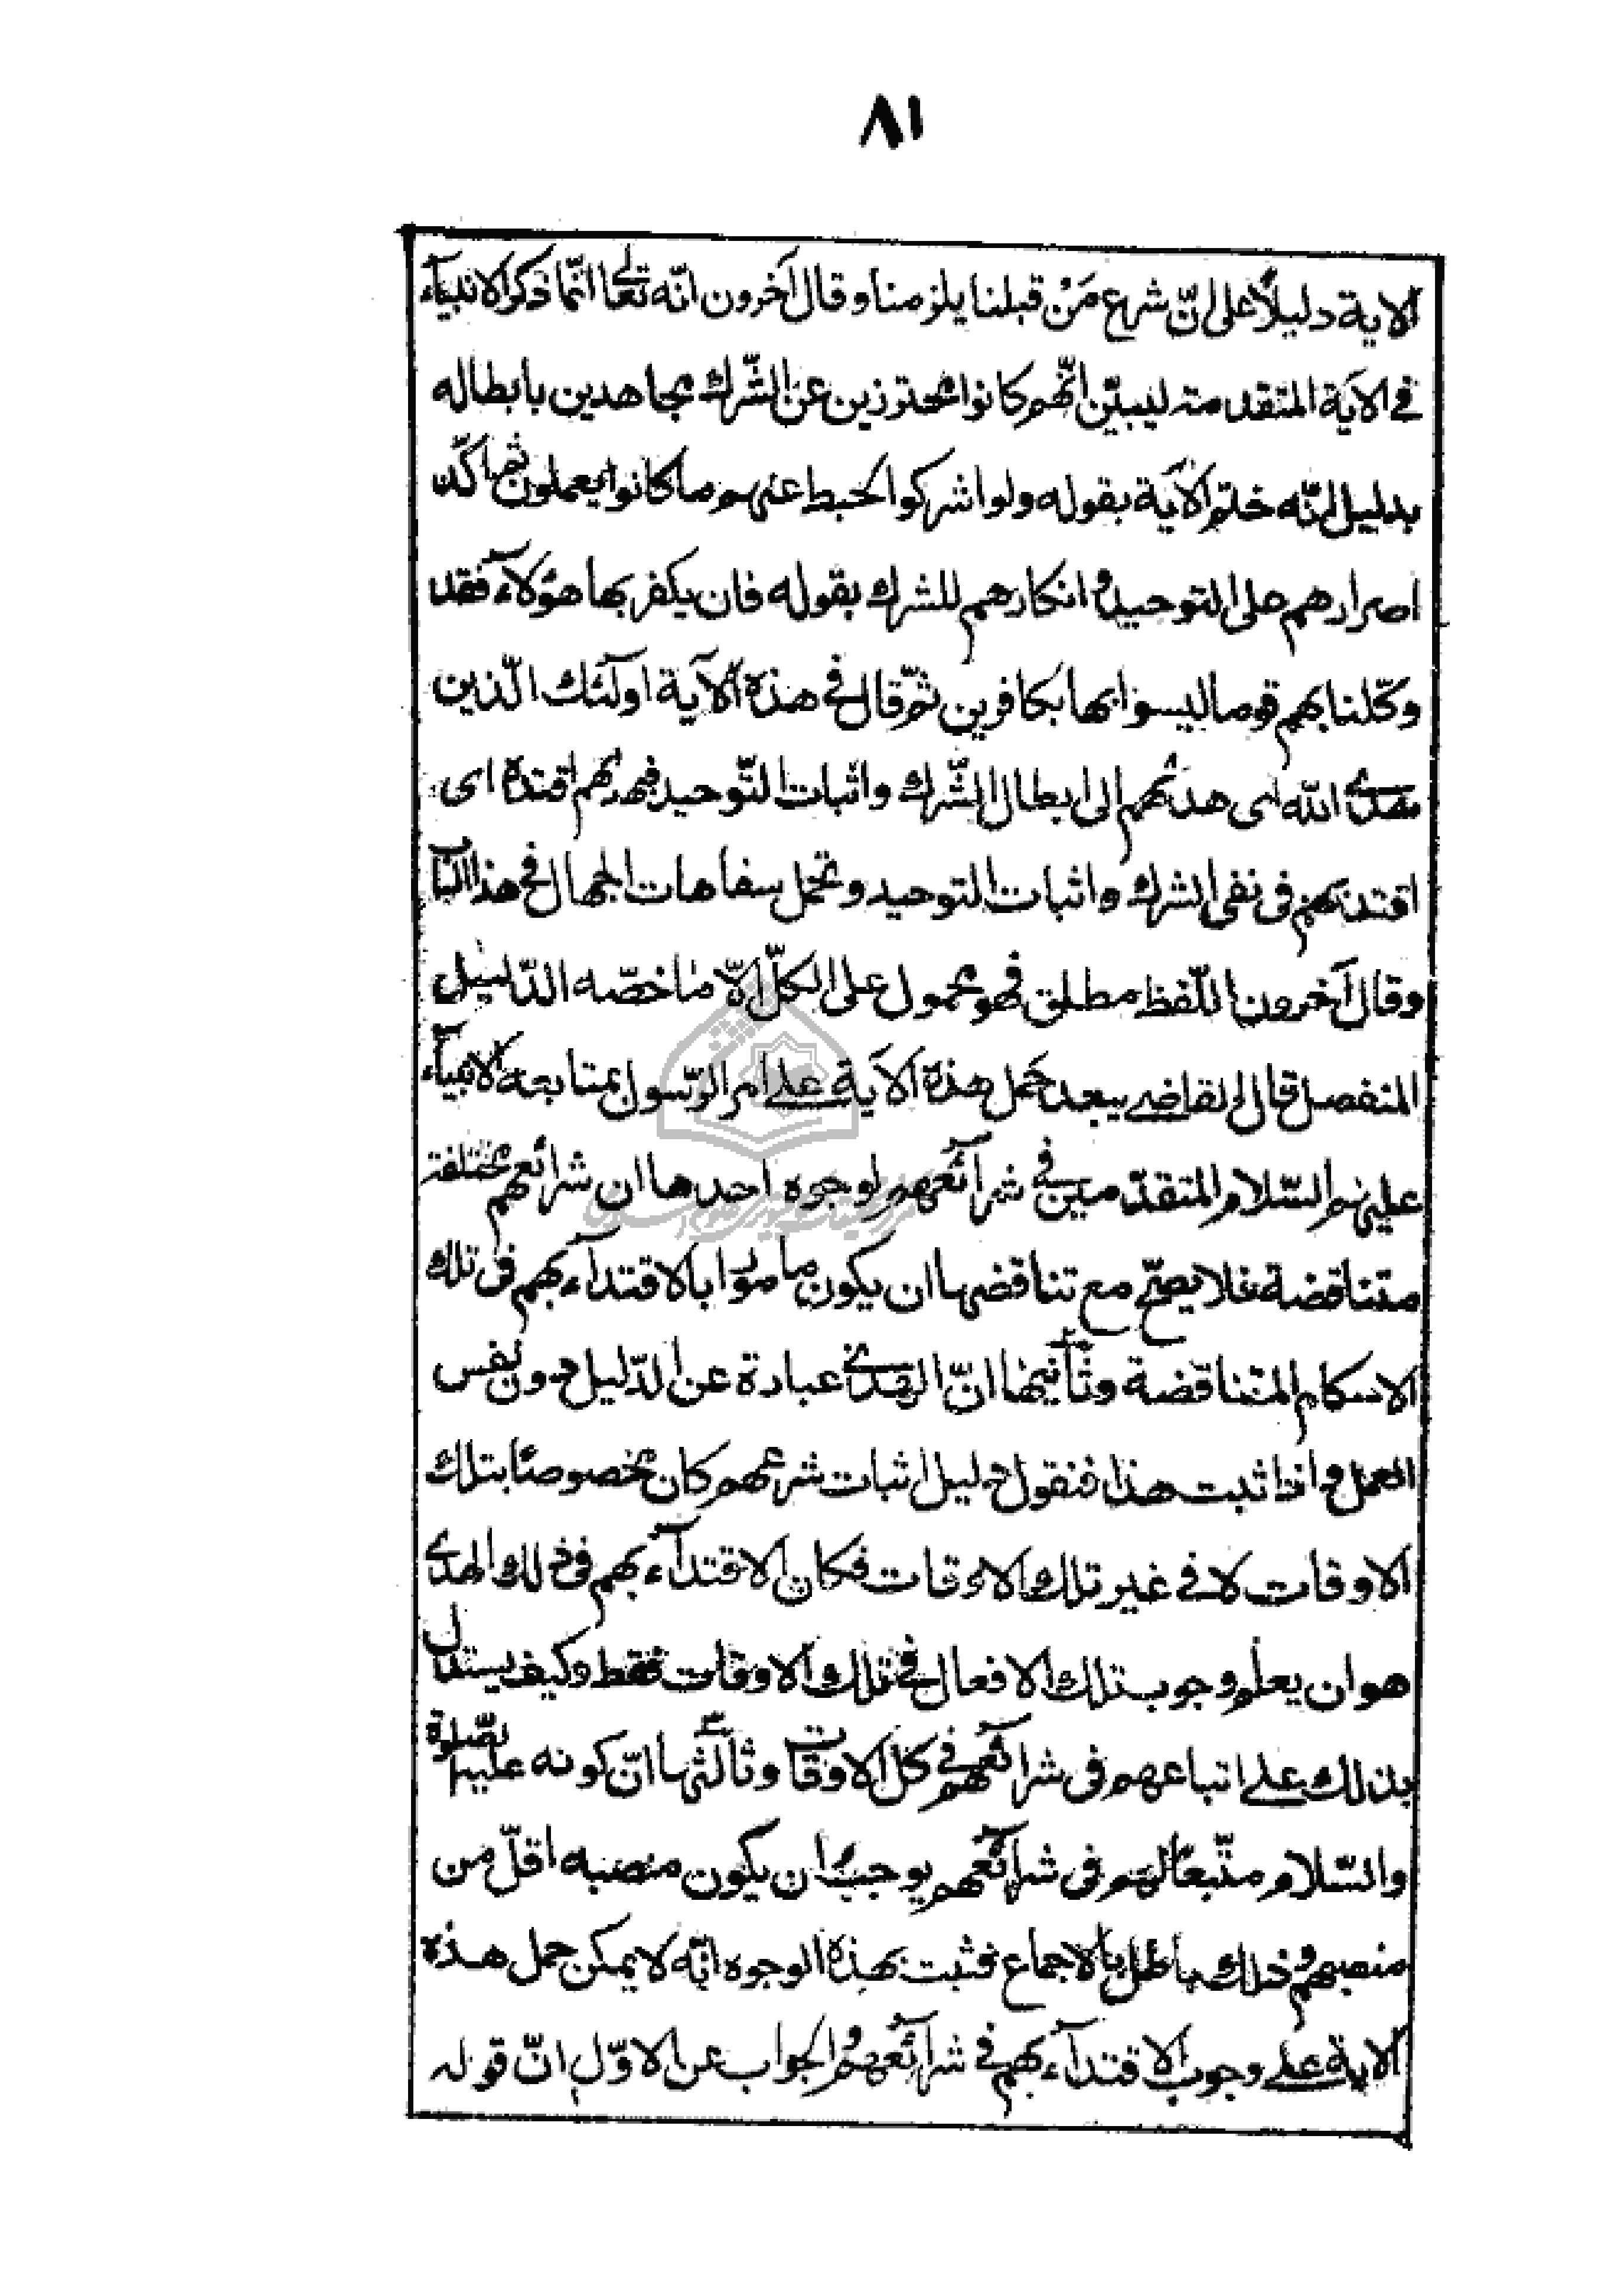 ٨١
الاية دليلاً على انّ شرع مَنْ قبلنا يلزمنا وقال آخرون انّه تعالى انّما ذكر الانبيآء
فى الآية المتقدمة ليبيّن انّهم كانوا محترزين عن الشّرك مجاهدين بابطاله
بدليل انّه ختم الآية بقوله ولو اشركوا لحبط عنهم ما كانوا يعملون ثم اكّد
اصرارهم على التوحيد و انكارهم للشرك بقوله فان يكفر بها هؤلآء فقد
وكّلنا بهم قوما ليسوا بها بكافرين ثمّ قال فى هذه الآية اولٓئك الّذين
هدى الله اى هديهم الى ابطال الشّرك واثبات التّوحيد فبهديهم اقتده اى
اقتد بهم فى نفى الشرك واثبات التوحيد وتحمّل سفاهات الجهال فى هذا الباب
وقال آخرون اللّفظ مطلق فهو محمول على الكلّ الاّ ما خصّه الدّليل
المنفصل قال القاضى يبعد حمل هذه الآية على امر الرّسول بمتابعة الانبيآء
عليهم السّلام المتقدّمين فى شرآئعهم لوجوه احدها ان شرائعهم مختلفة
متناقضة فلا يصحّ مع تناقضها ان يكون مامورا بالاقتدآء بهم فى تلك
الاحكام المتناقضة وثانيها انّ الهدى عبارة عن الدّليل دون نفس
العمل و اذا ثبت هذا فنقول دليل اثبات شرعهم كان مخصوصًا بتلك
الاوقات لا فى غير تلك الاوقات فكان الاقتدآء بهم فى ذلك الهدى
هو ان يعلم وجوب تلك الافعال فى تلك الاوقات فقط وكيف يستدل
بذلك على اتباعهم فى شرائعهم فى كل الاوقات وثالثها انّ كونه عليه الصّلوة
والسّلام متّبعًا لهم فى شرآئعهم يوجب ان يكون منصبه اقلّ من
منصبهم و ذلك باطل بالاجماع فثبت بهذه الوجوه انّه لا يمكن حمل هذه
الاية على وجوب الاقتدآء بهم فى شرآئعهم و الجواب عن الاوّل انّ قوله